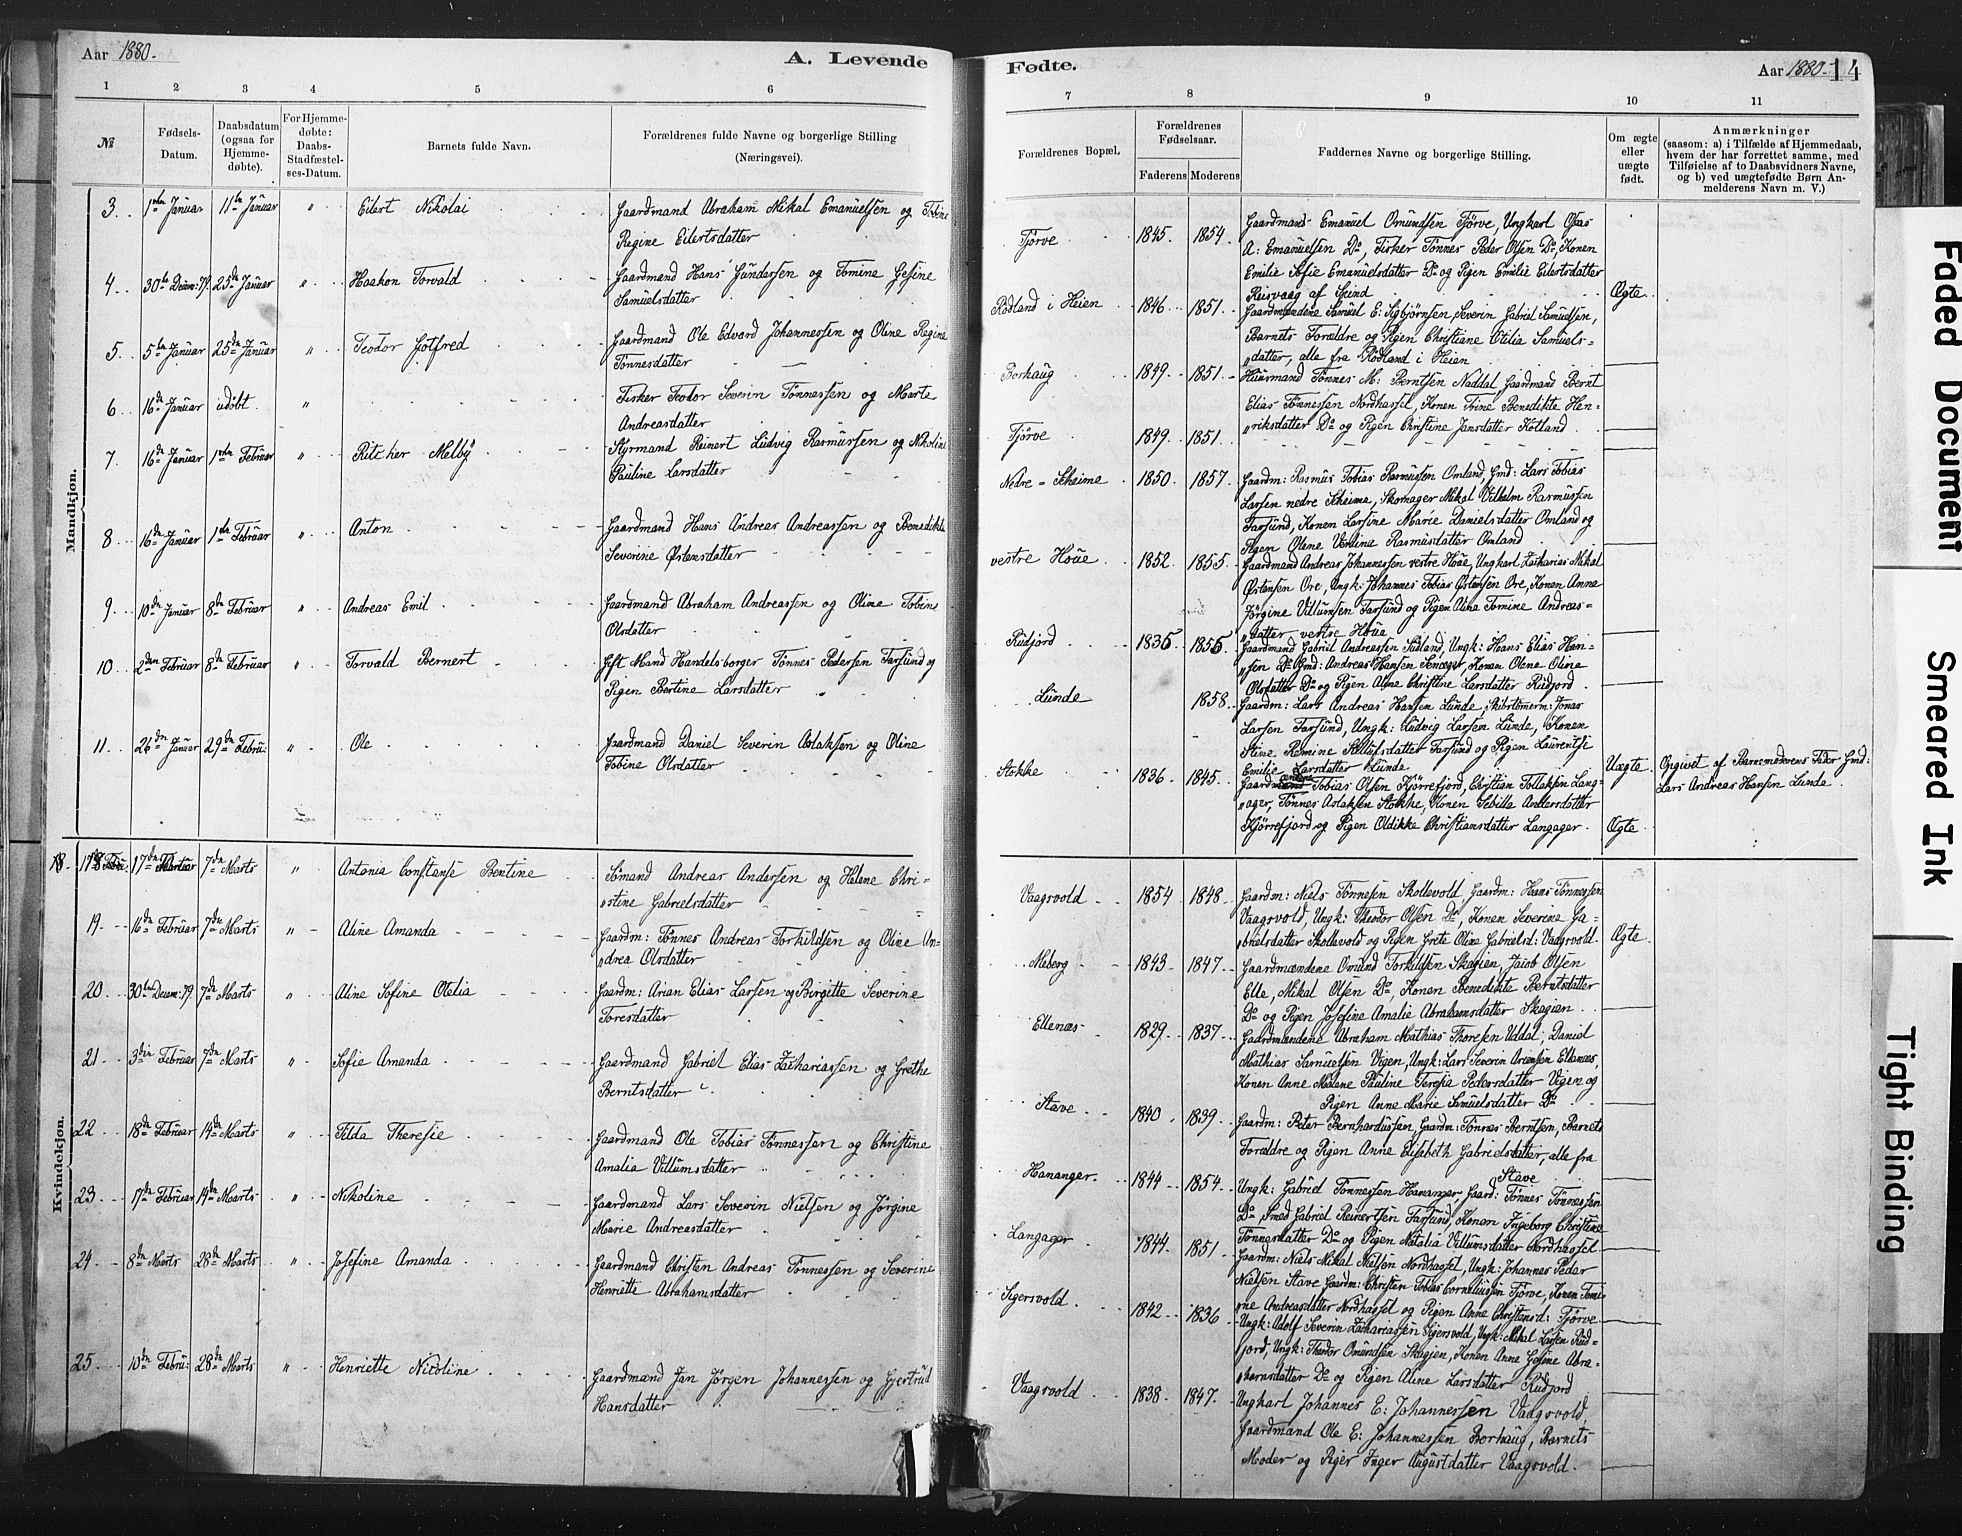 Aar 1880.
A. Levende
1 2 3 4 5 6
№
Fødsels-
Datum.
Daabsdatum
(ogsaa for
Hjemme-
døbte).
For Hjemme-
døbte:
Daabs-
Stadfæstel-
ses-Datum.
Barnets fulde Navn.
Forældrenes fulde Navne og borgerlige Stilling
(Næringsvei).
Mandkjøn.
3. 1ste Januar 11te Januar " Eilert Nikolai Gaardmand Abraham Mikal Emanuelsen og Tobine
Regine Eilertsdatter
4 30te Decem: 79. 25de Januar " Haakon Torvald Gaardmand Hans Gundersen og Tomine Gesine
Samuelsdatter
5 5te Januar 25de Januar " Teodor Gotfred Gaardmand Ole Edvard Johannessen og Oline Regine
Tønnesdatter
6 16de Januar udøbt. " Fisker Teodor Severin Tønnessen og Marte
Andreasdatter
7. 16de Januar 1ste Februar " Ritcher Melby Styrmand Reinert Ludvig Rasmussen og Nikoline
Pauline Larsdatter
8 16de Januar 1ste Februar " Anton Gaardmand Hans Andreas Andreassen og Benedikte
Severine Østensdatter
9 10de Januar 8de Februar " Andreas Emil Gaardmand Abraham Andreassen og Oline Tobine
Olsdatter
10 2den Februar 8de Februar " Torvald Bernert Gift Mand Handelsborger Tønnes Pedersen Farsund og
Pigen Bertine Larsdatter
11 26de Januar 29de Febru: " Ole Gaardmand Daniel Severin Aslaksen og Oline
Tobine Olsdatter
Kvindekjøn.
18. 17de Februar 7de Marts " Antonia Constanse Bentine Sømand Andreas Andersen og Helene Chri-
stine Gabrielsdatter
19. 16de Februar 7de Marts " Aline Amanda Gaardm: Tønnes Andreas Torkildsen og Oline An-
drea Olsdatter
20 30te Decem: 79. 7de Marts " Aline Sofine Otelia Gaardm: Arian Elias Larsen og Birgitte Severine
Toresdatter
21 3die Februar 7de Marts " Sofie Amanda Gaardmand Gabriel Elias Zachariassen og Grethe
Berntsdatter
22 18de Februar 14de Marts " Tilda Theresie Gaardmand Ole Tobias Tønnessen og Christine
Amalia Villumsdatter
23 17de Februar 14de Marts " Nikoline Gaardmand Lars Severin Nielsen og Jørgine
Marie Andreasdatter
24 8de Marts 28de Marts " Josefine Amanda Gaardmand Christen Andreas Tønnessen og Severine
Henriette Abrahamsdatter
25 10de Febru: 28de Marts " Henriette Nicoline Gaardmand Jan Jørgen Johannessen og Gjertrud
Hansdatter
Fødte.
Aar 1880. 14
7 8 9 10 11
Forældrenes Bopæl.
Forældrenes
Fødselsaar.
Faderens Moderens
Faddernes Navne og borgerlige Stilling.
Om ægte
eller
uægte
født.
Anmærkninger
(saasom: a) i Tilfælde af Hjemmedaab,
hvem der har forrettet samme, med
Tilføielse af to Daabsvidners Navne,
og b) ved uægtefødte Børn An-
melderens Navn m. V.)
Tjørve 1845. 1854. Gaardmand Emanuel Omundsen Tjørve, Ungkarl Osas
A: Emanuelsen Do, Fisker Tønnes Peder Olsen Do, Konen
Emilie Sofie Emanuelsdatter Do og Pigen Emilie Eilertsdatter
Reisvaag af Spind Ægte
Rødland i Heien 1846 1851. Gaardmændene Samuel E: Sigbjørnsen, Severin Gabriel Samuelsen,
Barnets Forældre og Pigen Christiane Otilia Samuels-
datter, alle fra Rødland i Heien
Borhaug 1849. 1851. Huusmand Tønnes M: Berntsen Naddal Gaardmand Bernt
Elias Tønnessen Nordhassel, Konen Trine Benedikte Hen-
riksdatter Do og Pigen Christine Jansdatter Kotland
Tjørve 1849. 1851.
Nedre-Skeime 1850. 1857. Gaardm: Rasmus Tobias Rasmussen Omland, Gmd: Lars Tobias
Larsen nedre Skeime, Skomager Mikal Vilhelm Rasmussen
Farsund, Konen Larsine Marie Danielsdatter Omland og
Pigen Olene Verdine Rasmusdatter Omland
vestre Houe 1852. 1855. Gaardmand Andreas Johannessen vestre Houe, Ungkarl Zacharias Mikal
Østensen Ore, Ungk: Johannes Tobias Østensen Ore, Konen Anna
Jørgine Villumsen Farsund og Pigen Alina Tomine Andreas-
datter vestre Houe
Rudjord 1835 1855. Gaardmand Gabriel Andreassen Sudland, Ungk: Hans Elias Han-
sen Do Gmd: Andreas Hansen, Konen Olene Oline
Olsdatter Do og Pigen Alene Christine Larsdatter Rudjord
Lunde 1858 Gaardm: Lars Andreas Hansen Lunde, Skibstømerm: Jonas
Larsen Farsund, Ungk: Ludvig Larsen Lunde, Konen
Stine Romine Farsund og Pigen Laurentse
Emilie Larsdatter Lunde Uægte Opgivet af Barnemoderens Fader Gmd:
Lars Andreas Hansen Lunde.
Stokke 1836 1845. Gaardmændene Tobias Olsen Kjørrefjord, Christian Tollaksen Lang-
ager, Tønnes Aslaksen Stokke, Konen Sebilla Andersdatter
Kjørrefjord og Pigen Oldikke Christiansdatter Langager Ægte
Vaagsvold 1854 1848. Gaardm: Niels Tønnesen Skollevold, Gaardm: Hans Tønnessen
Vaagsvold, Ungk: Theodor Olsen Do, Konen Severine Ga-
brielsdatter Skollevold og Pigen Grete Oline Gabrielsd: Vaagsvold. Ægte
Meberg 1843 1847. Gaardmændene Omund Torkildsen Skagien, Jacob Olsen
Elle, Mikal Olsen Do, Konen Benedikte Berntsdatter
Do og Pigen Josefine Amalie Abrahamsdatter Skagien
Ellenæs 1829. 1837. Gaardmændene Abraham Mathias Thoresen Uddal, Daniel
Mathias Samuelsen Vigen, Ungk: Lars Severin Ariansen Ellenæs,
Konen Anne Malene Pauline Teresia Pedersdatter Vigen og
Pigen Anne Marie Samuelsdatter Do
Stave 1840 1839. Gaardm: Peter Bernhardussen, Gaardm: Tønnes Berntsen, Barnets
Forældre og Pigen Anne Elisabeth Gabrielsdatter, alle fra
Stave
Hananger. 1844 1854. Ungk: Gabriel Tønnessen Hananger, Gaard: Tønnes Tønnessen
Do, Smed Gabriel Reinertsen Farsund, Konen Ingeborg Christine
Tønnesdatter Do og Pigen Natalia Villumsdatter Nordhassel
Langager 1844. 1851. Gaardm: Niels Mikal Nielsen Nordhassel, Ungk: Johannes Peder
Nielsen Stave Gaardm: Christen Tobias Corneliussen Tjørve, Konen Tomi-
ne Andreasdatter Nordhassel og Pigen Anne Christensd: Tjørve
Sigersvold 1842 1836 Ungk: Adolf Severin Zachariassen Sigersvold, Ungk: Mikal Larsen Rud-
jord, Ungk: Theodor Omundsen Skagjen, Konen Anne Gesine Abra-
hamsdatter Do og Pigen Aline Larsdatter Rudjord
Vaagsvold 1838. 1847. Ungkarl Johannes E: Johannessen Vaagsvold,
Gaardmand Ole E: Johannessen Borhaug, Barnets
Moder og Piger Inger Augustdatter Vaagsvold.
Faded Document
Smeared Ink
Tight Binding